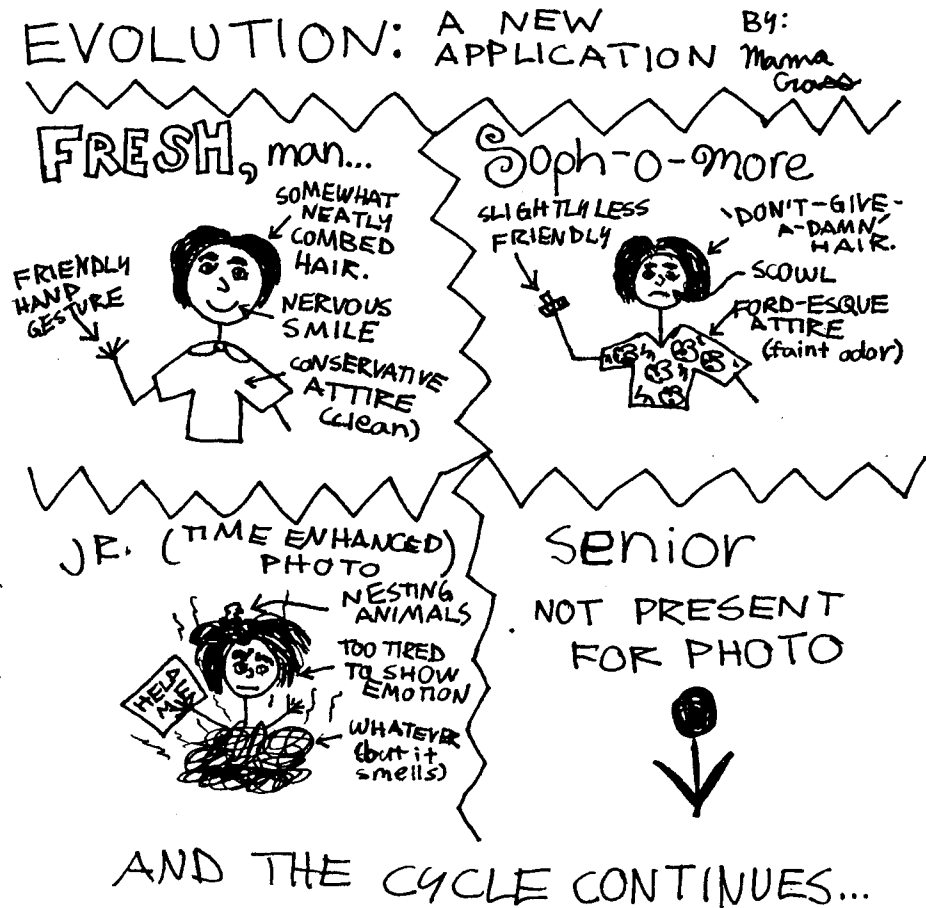 EVOLUTION: A NEW
APPLICATION
By:
Mama
Grass
FRESH, man...
SOMEWHAT
NEATLY
COMBED
HAIR.
FRIENDLY
HAND
GESTURE
NERVOUS
SMILE
CONSERVATIVE
ATTIRE
(clean)
Soph-o-more
SLIGHTLY LESS
FRIENDLY
'DON'T-GIVE-
A-DAMN'
HAIR.
SCOWL
FORD-ESQUE
ATTIRE
(faint odor)
JR. (TIME ENHANCED)
PHOTO
NESTING
ANIMALS
TOO TIRED
TO SHOW
EMOTION
HELP
ME
WHATEVER
(but it
smells)
Senior
NOT PRESENT
FOR PHOTO
AND THE CYCLE CONTINUES...